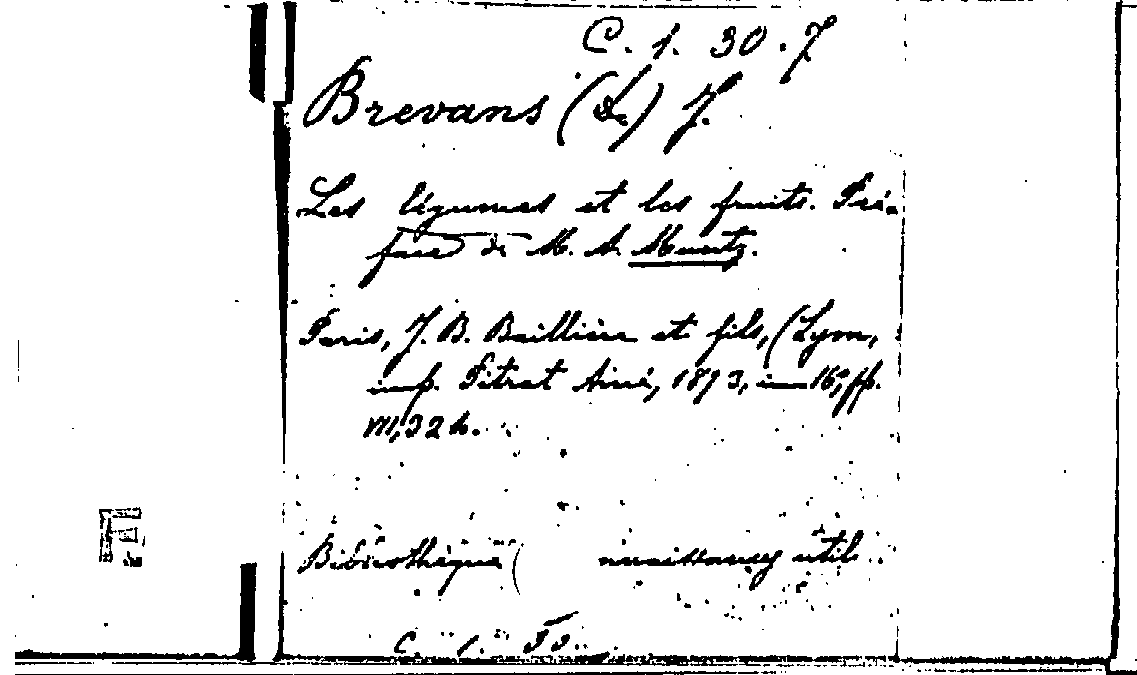 C. 1. 30. 7
Brevans (de) J.
Les légumes et les fruits. Pré-
face de M. A. Muntz.
Paris, J. B. Baillière et fils, (Lyon,
imp. Pitrat Ainé, 1893, in-16°, pp.
VII, 324.
Bibliothèque nnaissances utiles
C. 1. 30.
F.